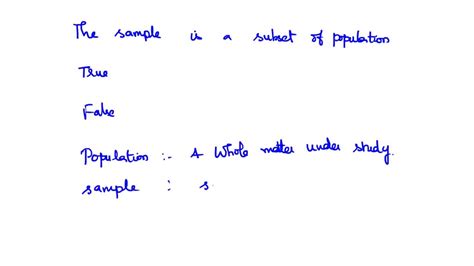 The sample is a subset of population
True
False
Population :- A Whole matter under study.
sample : s